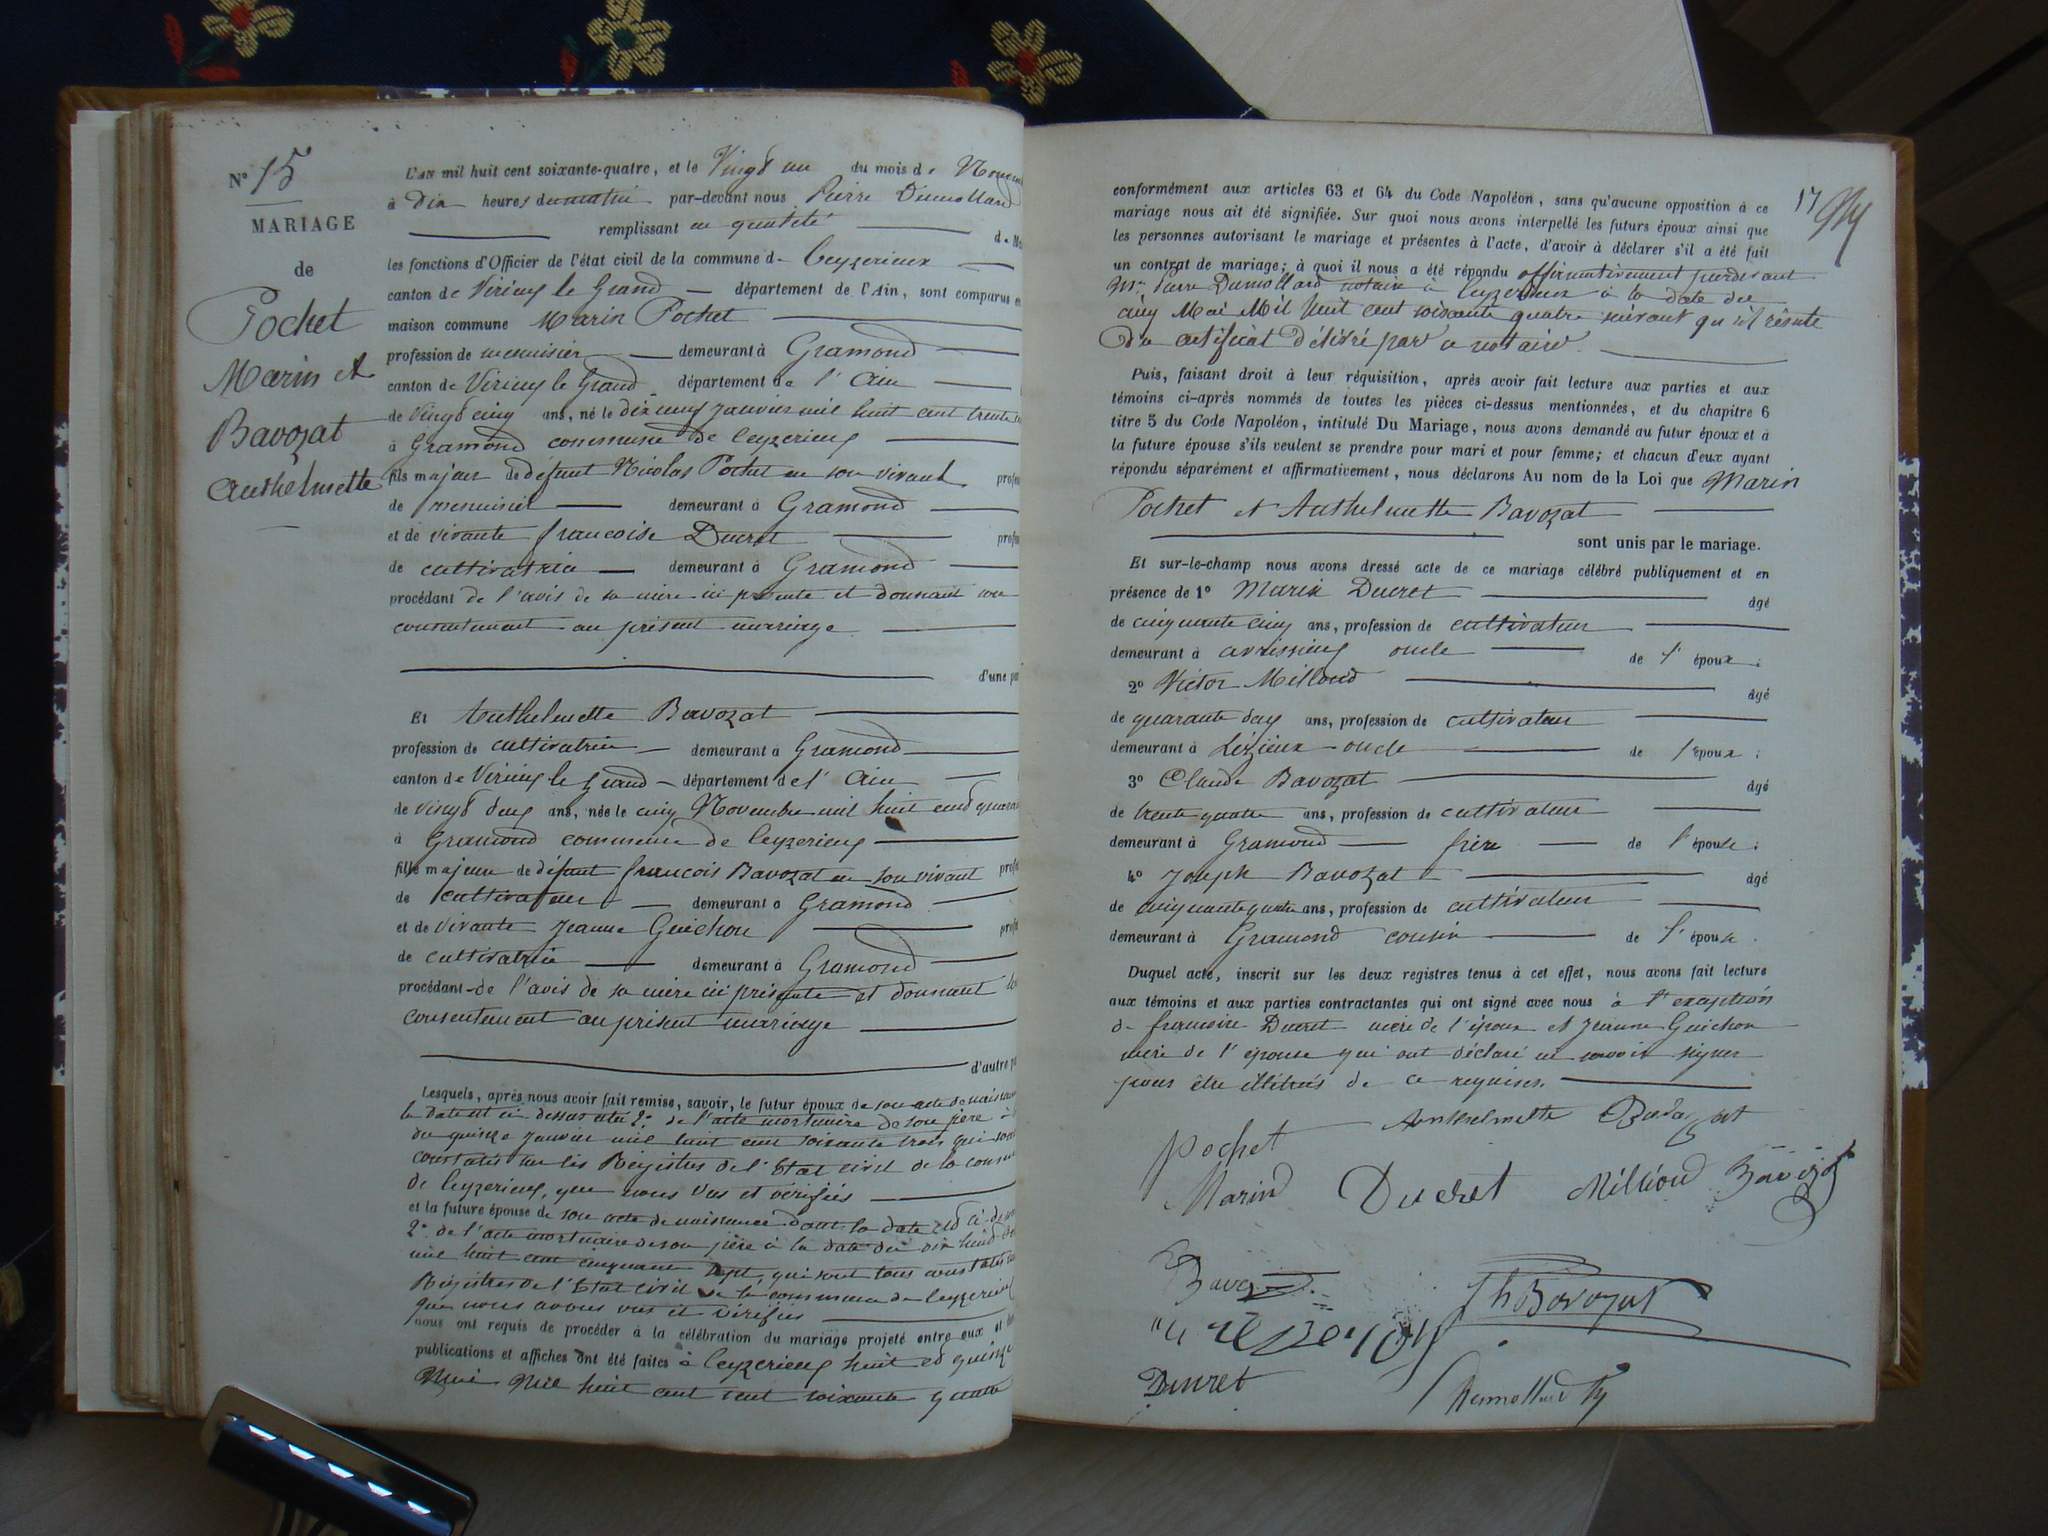 N° 15
MARIAGE
de
Pochet
Marin et
Bavozat
Anthelmette
L'AN mil huit cent soixante-quatre, et le Vingt un du mois de
à Dix heures du matin par-devant nous Pierre Dumollard
remplissant en qualité d
les fonctions d'Officier de l'état civil de la commune de Ceyzerieux
canton de Virieu le Grand département de l'Ain, sont comparus en
maison commune Marin Pochet
profession de menuisier demeurant à Gramond
canton de Virieu le Grand département de l'Ain
de Vingt cinq ans, né le dix neuf janvier mil huit cent trente
à Gramond commune de Ceyzerieux
fils majeur de défunt Nicolas Pochet en son vivant
de menuisier demeurant à Gramond
et de vivante françoise Ducret
de cultivatrice demeurant à Gramond
procédant de l'avis de sa mère ici présente et donnant son
consentement au présent mariage
d'une
Et Anthelmette Bavozat
profession de cultivatrice demeurant à Gramond
canton de Virieu le Grand département de l'Ain
de vingt deux ans, née le cinq Novembre mil huit cent
à Gramond commune de Ceyzerieux
fille majeure de défunt françois Bavozat en son vivant
de cultivateur demeurant à Gramond
et de vivante Jeanne Guichon
de cultivatrice demeurant à Gramond
procédant de l'avis de sa mère ici présente et donnant
consentement au présent mariage
d'autre
Lesquels, après nous avoir fait remise, savoir, le futur époux de son acte de
la date est ci dessus 2° de l'acte mortuaire de son père
du quinze janvier mil huit cent soixante trois qui sont
constatés sur les Registres de l'Etat civil de la
de Ceyzerieux, que nous vus et vérifiés
et la future épouse de son acte de naissance dont la date est ci
2° de l'acte mortuaire de son père à la date du dix huit
mil huit cent cinquante sept, qui sont tous constatés
Registres de l'Etat civil de la commune de Ceyzerieux
que nous avons vus et vérifiés
nous ont requis de procéder à la célébration du mariage projeté entre eux et
publications et affiches ont été faites à Ceyzerieux huit et quinze
Mai Mil huit cent cent soixante quatre
17
conformément aux articles 63 et 64 du Code Napoléon, sans qu'aucune opposition à ce
mariage nous ait été signifiée. Sur quoi nous avons interpellé les futurs époux ainsi que
les personnes autorisant le mariage et présentes à l'acte, d'avoir à déclarer s'il a été fait
un contrat de mariage; à quoi il nous a été répondu affirmativement pardevant
Mr Pierre Dumollard notaire à Ceyzerieux à la date du
cinq Mai Mil huit cent soixante quatre suivant qu'il résulte
du certificat délivré par ce notaire.
Puis, faisant droit à leur réquisition, après avoir fait lecture aux parties et aux
témoins ci-après nommés de toutes les pièces ci-dessus mentionnées, et du chapitre 6
titre 5 du Code Napoléon, intitulé Du Mariage, nous avons demandé au futur époux et à
la future épouse s'ils veulent se prendre pour mari et pour femme; et chacun d'eux ayant
répondu séparément et affirmativement, nous déclarons Au nom de la Loi que Marin
Pochet et Anthelmette Bavozat
sont unis par le mariage.
Et sur-le-champ nous avons dressé acte de ce mariage célébré publiquement et en
présence de 1° Marin Ducret âgé
de cinquante cinq ans, profession de cultivateur
demeurant à avrissieux oncle de l'époux;
2° Victor Milloud âgé
de quarante deux ans, profession de cultivateur
demeurant à Lézieux oncle de l'époux;
3° Claude Bavozat âgé
de trente quatre ans, profession de cultivateur
demeurant à Gramond frère de l'épouse;
4° Joseph Bavozat âgé
de cinquante quatre ans, profession de cultivateur
demeurant à Gramond cousin de l'épouse.
Duquel acte, inscrit sur les deux registres tenus à cet effet, nous avons fait lecture
aux témoins et aux parties contractantes qui ont signé avec nous à l'exception
de françoise Ducret mère de l'époux et Jeanne Guichon
mère de l'épouse qui ont déclaré ne savoir signer
pour être illétrés de ce requises.
Anthelmette Bavozat
Pochet
Marin Ducret Millioud Bavozat
Bavozat
Jh Bavozat
Ducret
Dumollard